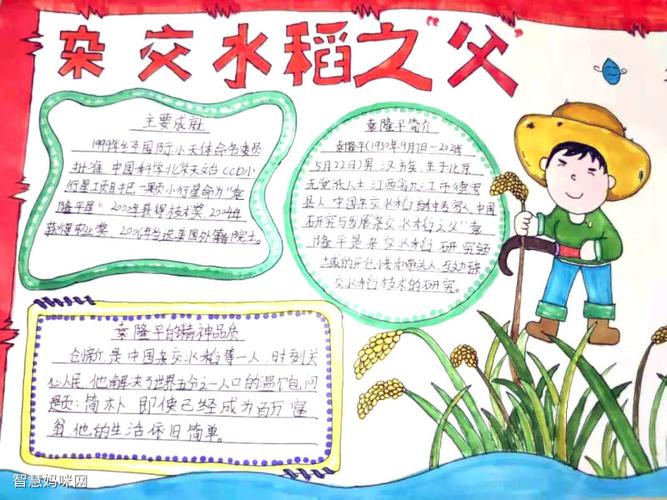 杂交水稻之“父”
主要成就
1999年经国际小天体命名委员会
批准 中国科学北京天文台 CCD小
行星项目把一颗小行星命为“袁
隆平星” 2000年获得技术奖 2004年
获 农业奖 2006年当选美国外籍院士。
袁隆平简介
袁隆平(1930年9月7日-2021年
5月22日)男 汉族 生于北京
无党派人士 江西省九江市德安
县人 中国杂交水稻 专家 中国
研究与发展杂交水稻之父“袁
隆平是杂交水稻研究领
域的开创 和带头人
杂交水稻技术的研究。
袁隆平的精神品质
创新 是中国杂交水稻第一人 时刻关
心人民 他解决了世界五分之一人口的温饱问
题: 简朴 即使已经成为百万富
翁 他的生活依旧简单。
智慧妈咪网